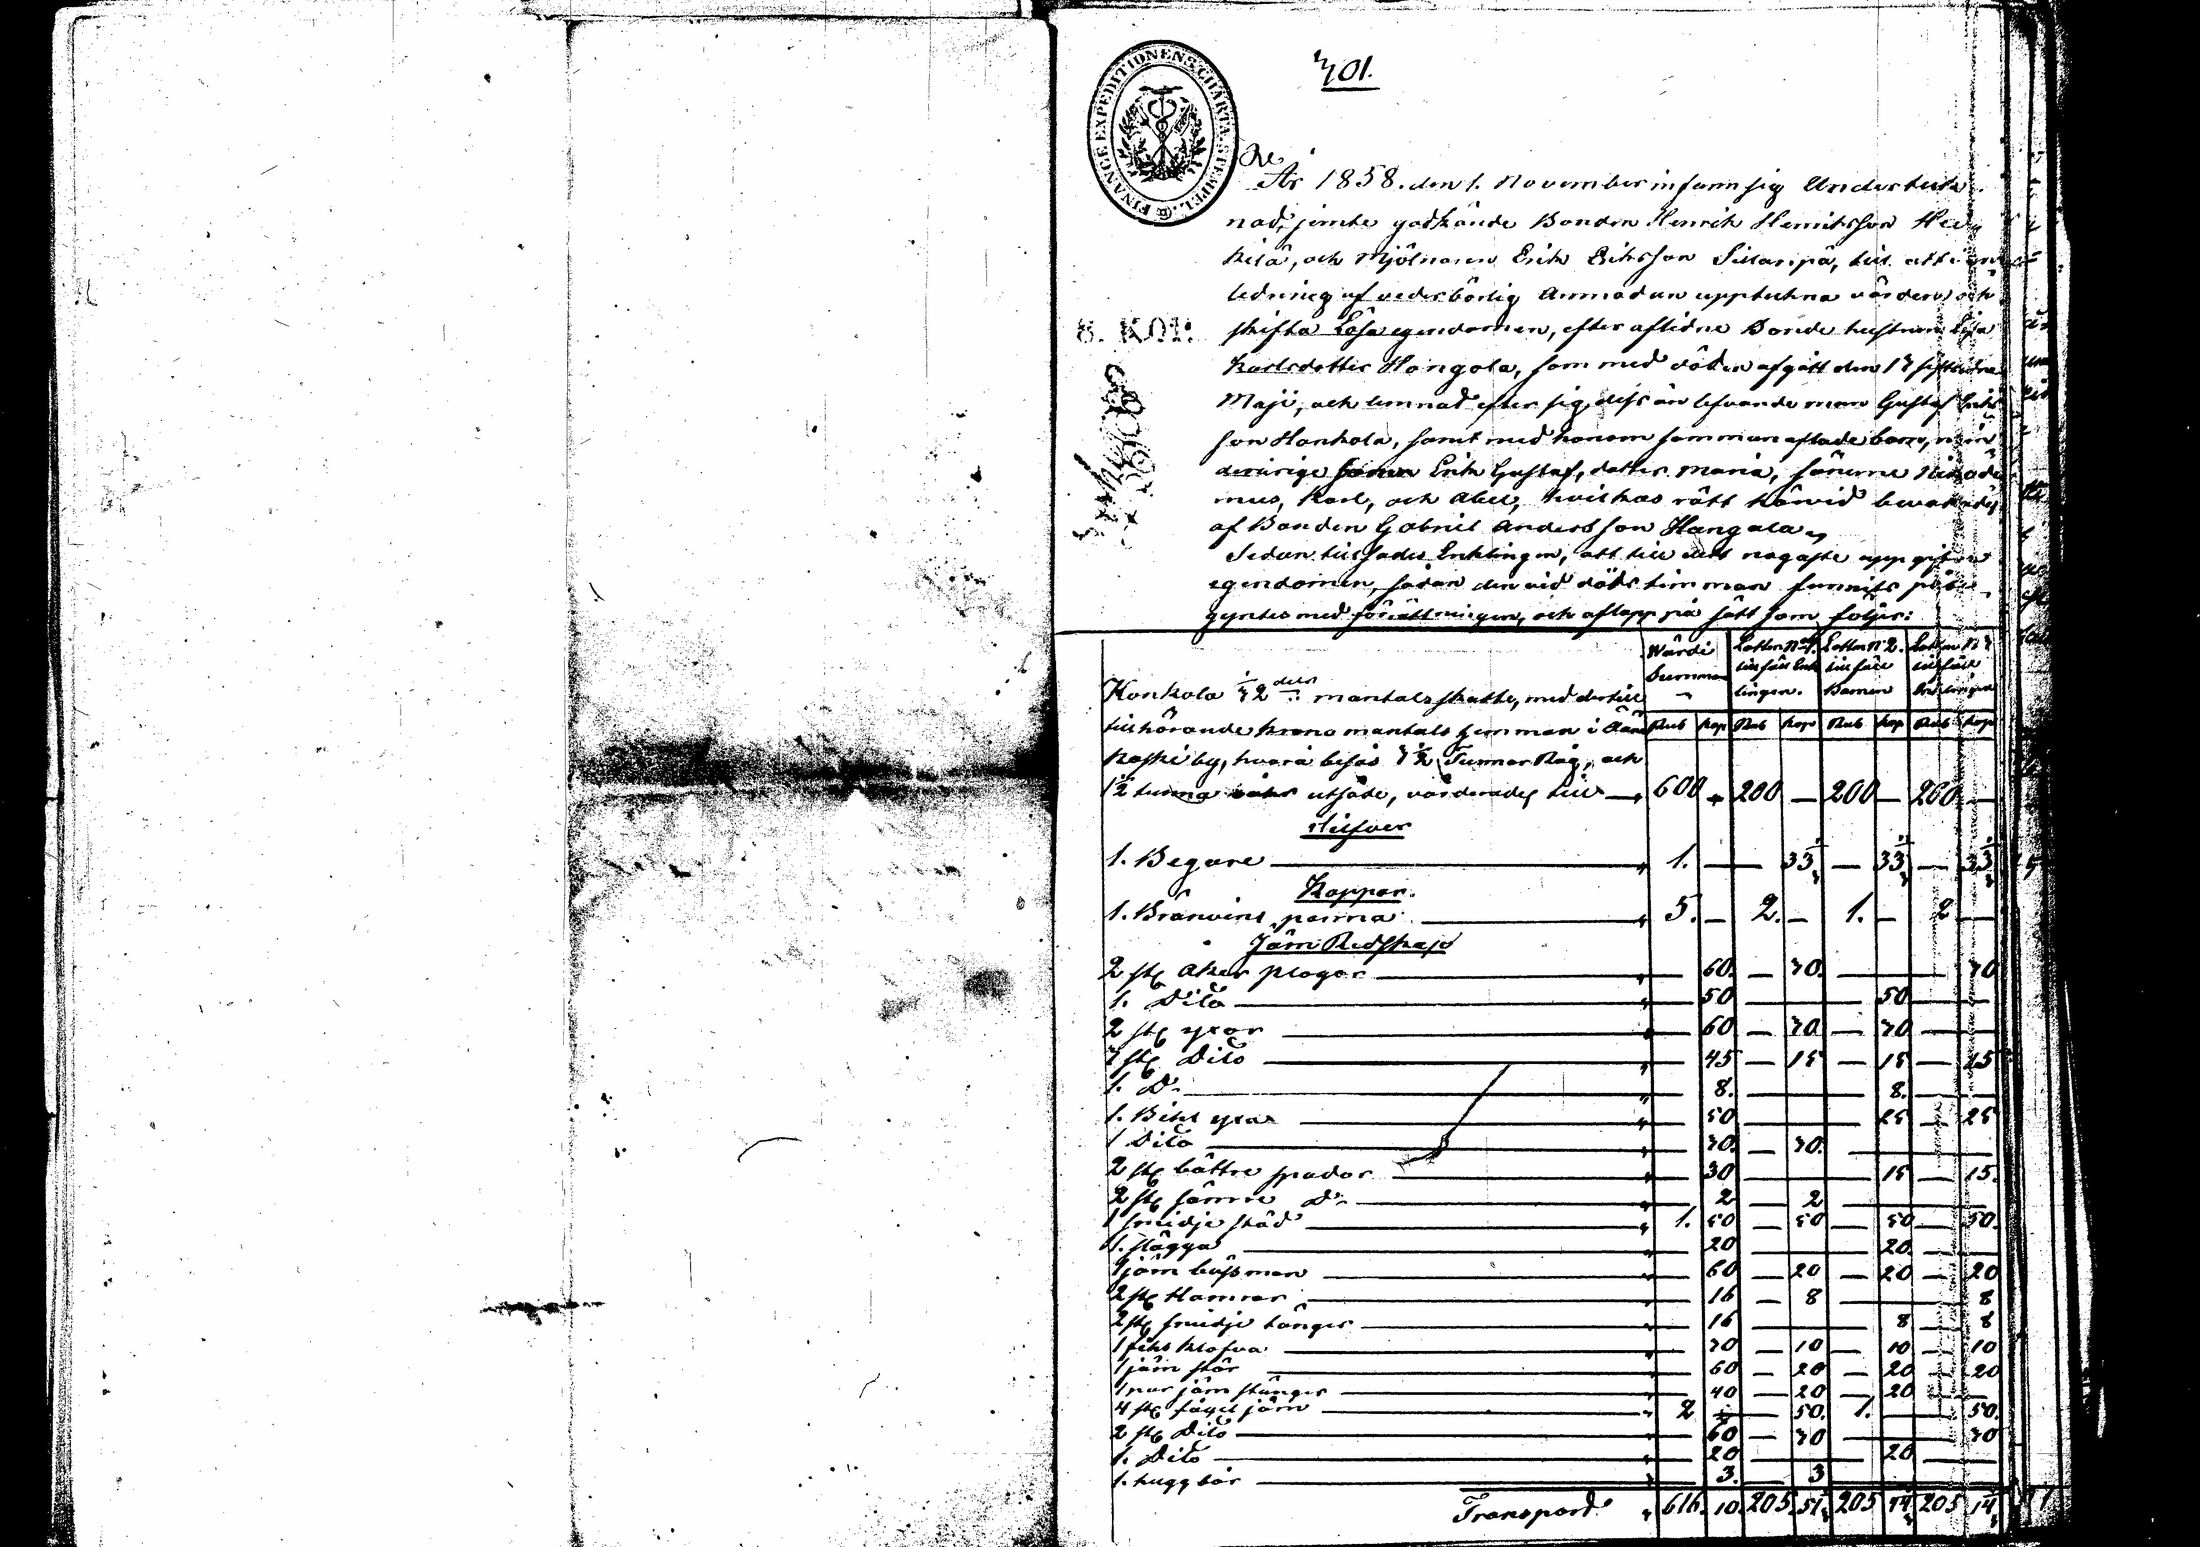 301.
FINANCE EXPEDITIONENS CHARTÆ STEMPEL.
År 1858. den 1. November infann sig Underteck-
nad, jemte godkände Bonden Henrik Henriksson Hei-
kilä, och Mjölnaren Erik Eriksson Sillanpä, till att i an-
ledning af vederbörlig anmodan uppteckna värdera och
8. KOP.
skifta Lösa egendomen, efter aflidne Bonde hustrun Lisa
Karlsdotter Hongola, som med döden afgått den 13 sistledne
Maji, och lemnad efter sig, dess än lefvande man Gustaf Eriks
son Honkola, samt med honom samman aflade barn, min
derårige sonen Erik Gustaf, dotter Maria, sönerne Nikode
mus, Karl, och Abel, hvilkas rätt härvid bevakades
af Bonden Gabriel Andersson Hangala,
Sedan tillsades Enklingen, att till det nogaste uppgifva
egendomen, sådan den vid döds timman funnits
gyntes med förrättningen, och aflopp på sätt som följer:
Wärdi Summan
Lotten N:o 1. tillfäll Enk lingen.
Lotten N:o 2. tillfäll Barnen
Lotten N:o 3 tillfäll Enklingen
Konkola 1/32 dels mantals skatte, med dertill
tillhörande krono mantals hemman i
Rub Kop Rub Kop Rub Kop Rub Kop
Koski by, hvarå besås 3 1/2 Tunnor Råg, och
1/2 tunna utsäde, värderades till 600 — 200 — 200 — 200 —
Silfver
1. Begare 1. — — 33 1/3 — 33 1/3 — 33 1/3
Koppar.
1. Bränvins panna 5. — 2. — 1. — 2 —
Järn Redskap
2 st. åker plogar — 60. — 30. — — — 30
1. Dito — 50 — — — 50 — —
2 st. yxor — 60 — 30 — 30 — —
3 st. Dito — 45 — 15 — 15 — 15
1. D:o — 8. — — — 8. — —
1. Bihl yxa — 50 — — — 25 — 25
1 Dito — 30. — 30. — — — —
2 st. bättre spadar — 30 — — — 15 — 15.
2 st. sämre D:o — 2 — 2 — — — —
1 smidje städ 1. 50 — 50 — 50 — 50.
1. slägga — 20 — — — 20. — —
1 järn bössman — 60 — 20 — 20 — 20
2 st. Hamrar — 16 — 8 — — — 8
2 st. smidje tänger — 16 — — — 8 — 8
1 — 30 — 10 — 10 — 10
1 järn stör — 60 — 20 — 20 — 20
1 par järn stänger — 40 — 20 — 20 — —
4 st. järn 2 — — 50. 1. — — 50.
2 st. Dito — 60 — 30 — — — 30
1. Dito — 20 — — — 20 — —
1. — 3. — 3 — — — —
Transport 616. 10. 205. 205 205